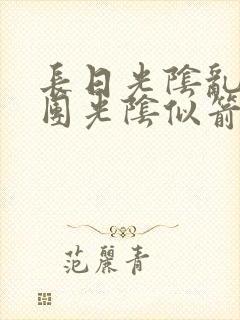 長日光陰亂
團光陰似箭
范麗青